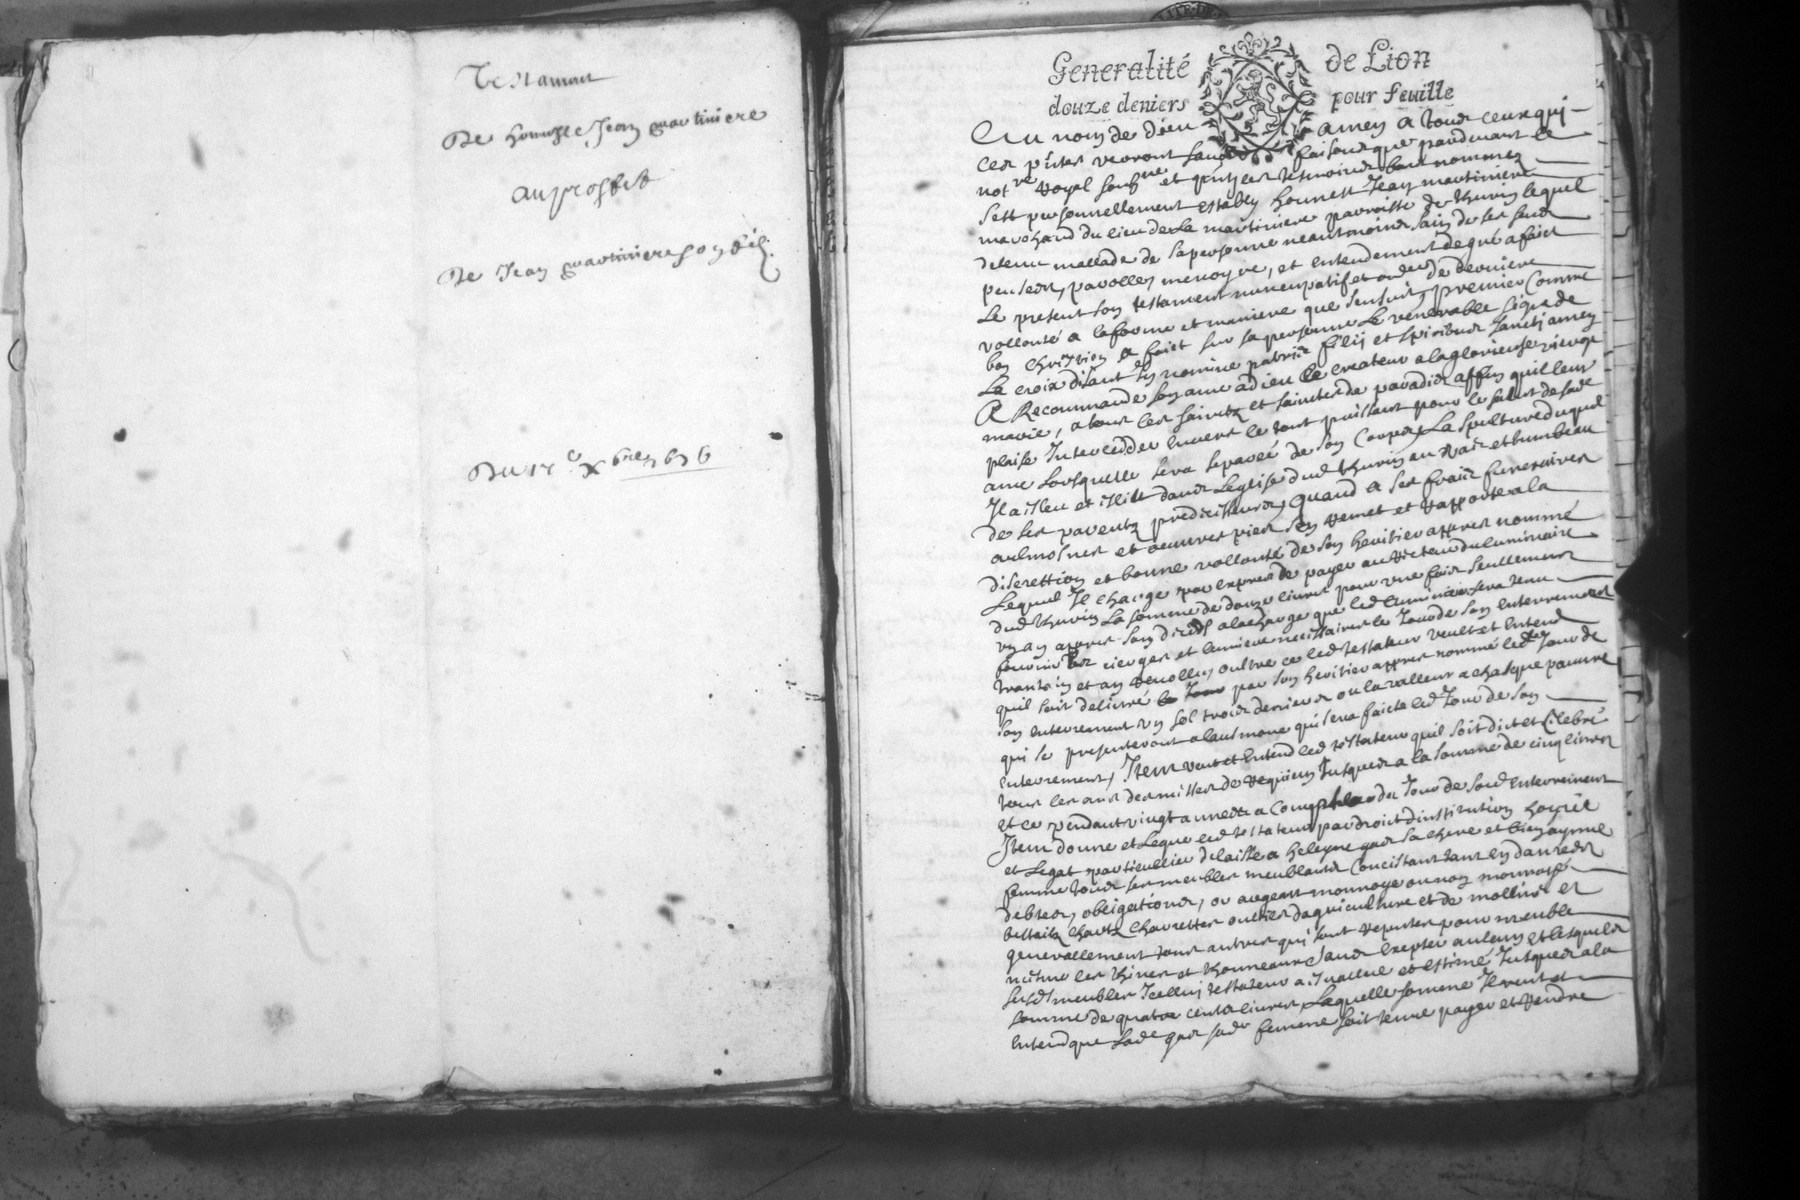 Testament
De honneste Jean martiniere
au proffit
De Jean martiniere son filz
Du 17e xbre 1676
Generalité de Lion
douze deniers pour feuille
Au nom de dieu amen a tous ceux qui
ces pntes verront scavoir faisons que pardevant le
notre Royal soubzne et present les tesmoings bas nommez
sest personnellement estably honneste Jean martiniere
marchand du lieu de la martiniere parroisse de thurin lequel
detenu mallade de sa personne neantmoings sain de ses sens
pensees, parolles memoyre, et entendement de gré a faict
le present son testament nuncupatif et ordce de derniere
vollonté a la forme et maniere que sensuit, premier comme
bon chrestien a faict sur sa personne le venerable signe de
La croix disant In nomine patris filij et spiritus sancti amen
A Recommande son ame a dieu le createur a la glorieuse vierge
marie, a tous les saints et saintes de paradis affin quil leur
plaise Interceder envers le tout puissant pour le salut de sade
ame Lorsquelle sera separée de son corps, La spulture duquel
Il a esleu et eslit dans Leglise dud thurin au vas et tumbeau
de ses parents predecesseurs, Quand a ses frais funeraires
aulmosnes et oeuvres pies sen remet et rapporte a la
discrettion et bonne vollonté de son heritier appres nommé
Lequel Il charge par expres de payer au Recteur du luminaire
dud thurin La somme de douze livres pour une fois seullement
un an appres son deceds a la charge que led luminier sera tenu
fournir les cierges et lumiere necessaires le Jour de son enterrement
trantain et an revollu, oultre ce led testateur veult et entend
quil soit delivré par son heritier appres nommé led Jour de
son enterrement un sol trois deniers ou la valleur a chasque pauvre
qui se presenteront a laulmone qui sera faicte led Jour de son
enterrement, Item veut et entend led testateur quil soit dict et celebré
tous les ans des messes de requiem Jusques a la somme de cinq livres
et ce pendant vingt annees a compter du Jour de sond enterrement
Item donne et legue led testateur par droict dinstitution hoyrie
et Legat particullier delaisse a heleyne gros sa chere et bien aymee
femme tous ses meubles meublants consistant tant en danrees
debtes, obligations, or argent monnoye ou non monnoye
bestail, chars charrettes outtils dagriculture et de mollins et
generallement tous autres qui sont reputes pour meuble
mesme les thines et thonneaux sans excepter aulcun et lesquels
susds meubles Icelluy testateur a evallué et estimé Jusques a la
somme de quatre cents livres Laquelle somme Il veut et
entend que lade gros sade femme soit tenue payer et rendre